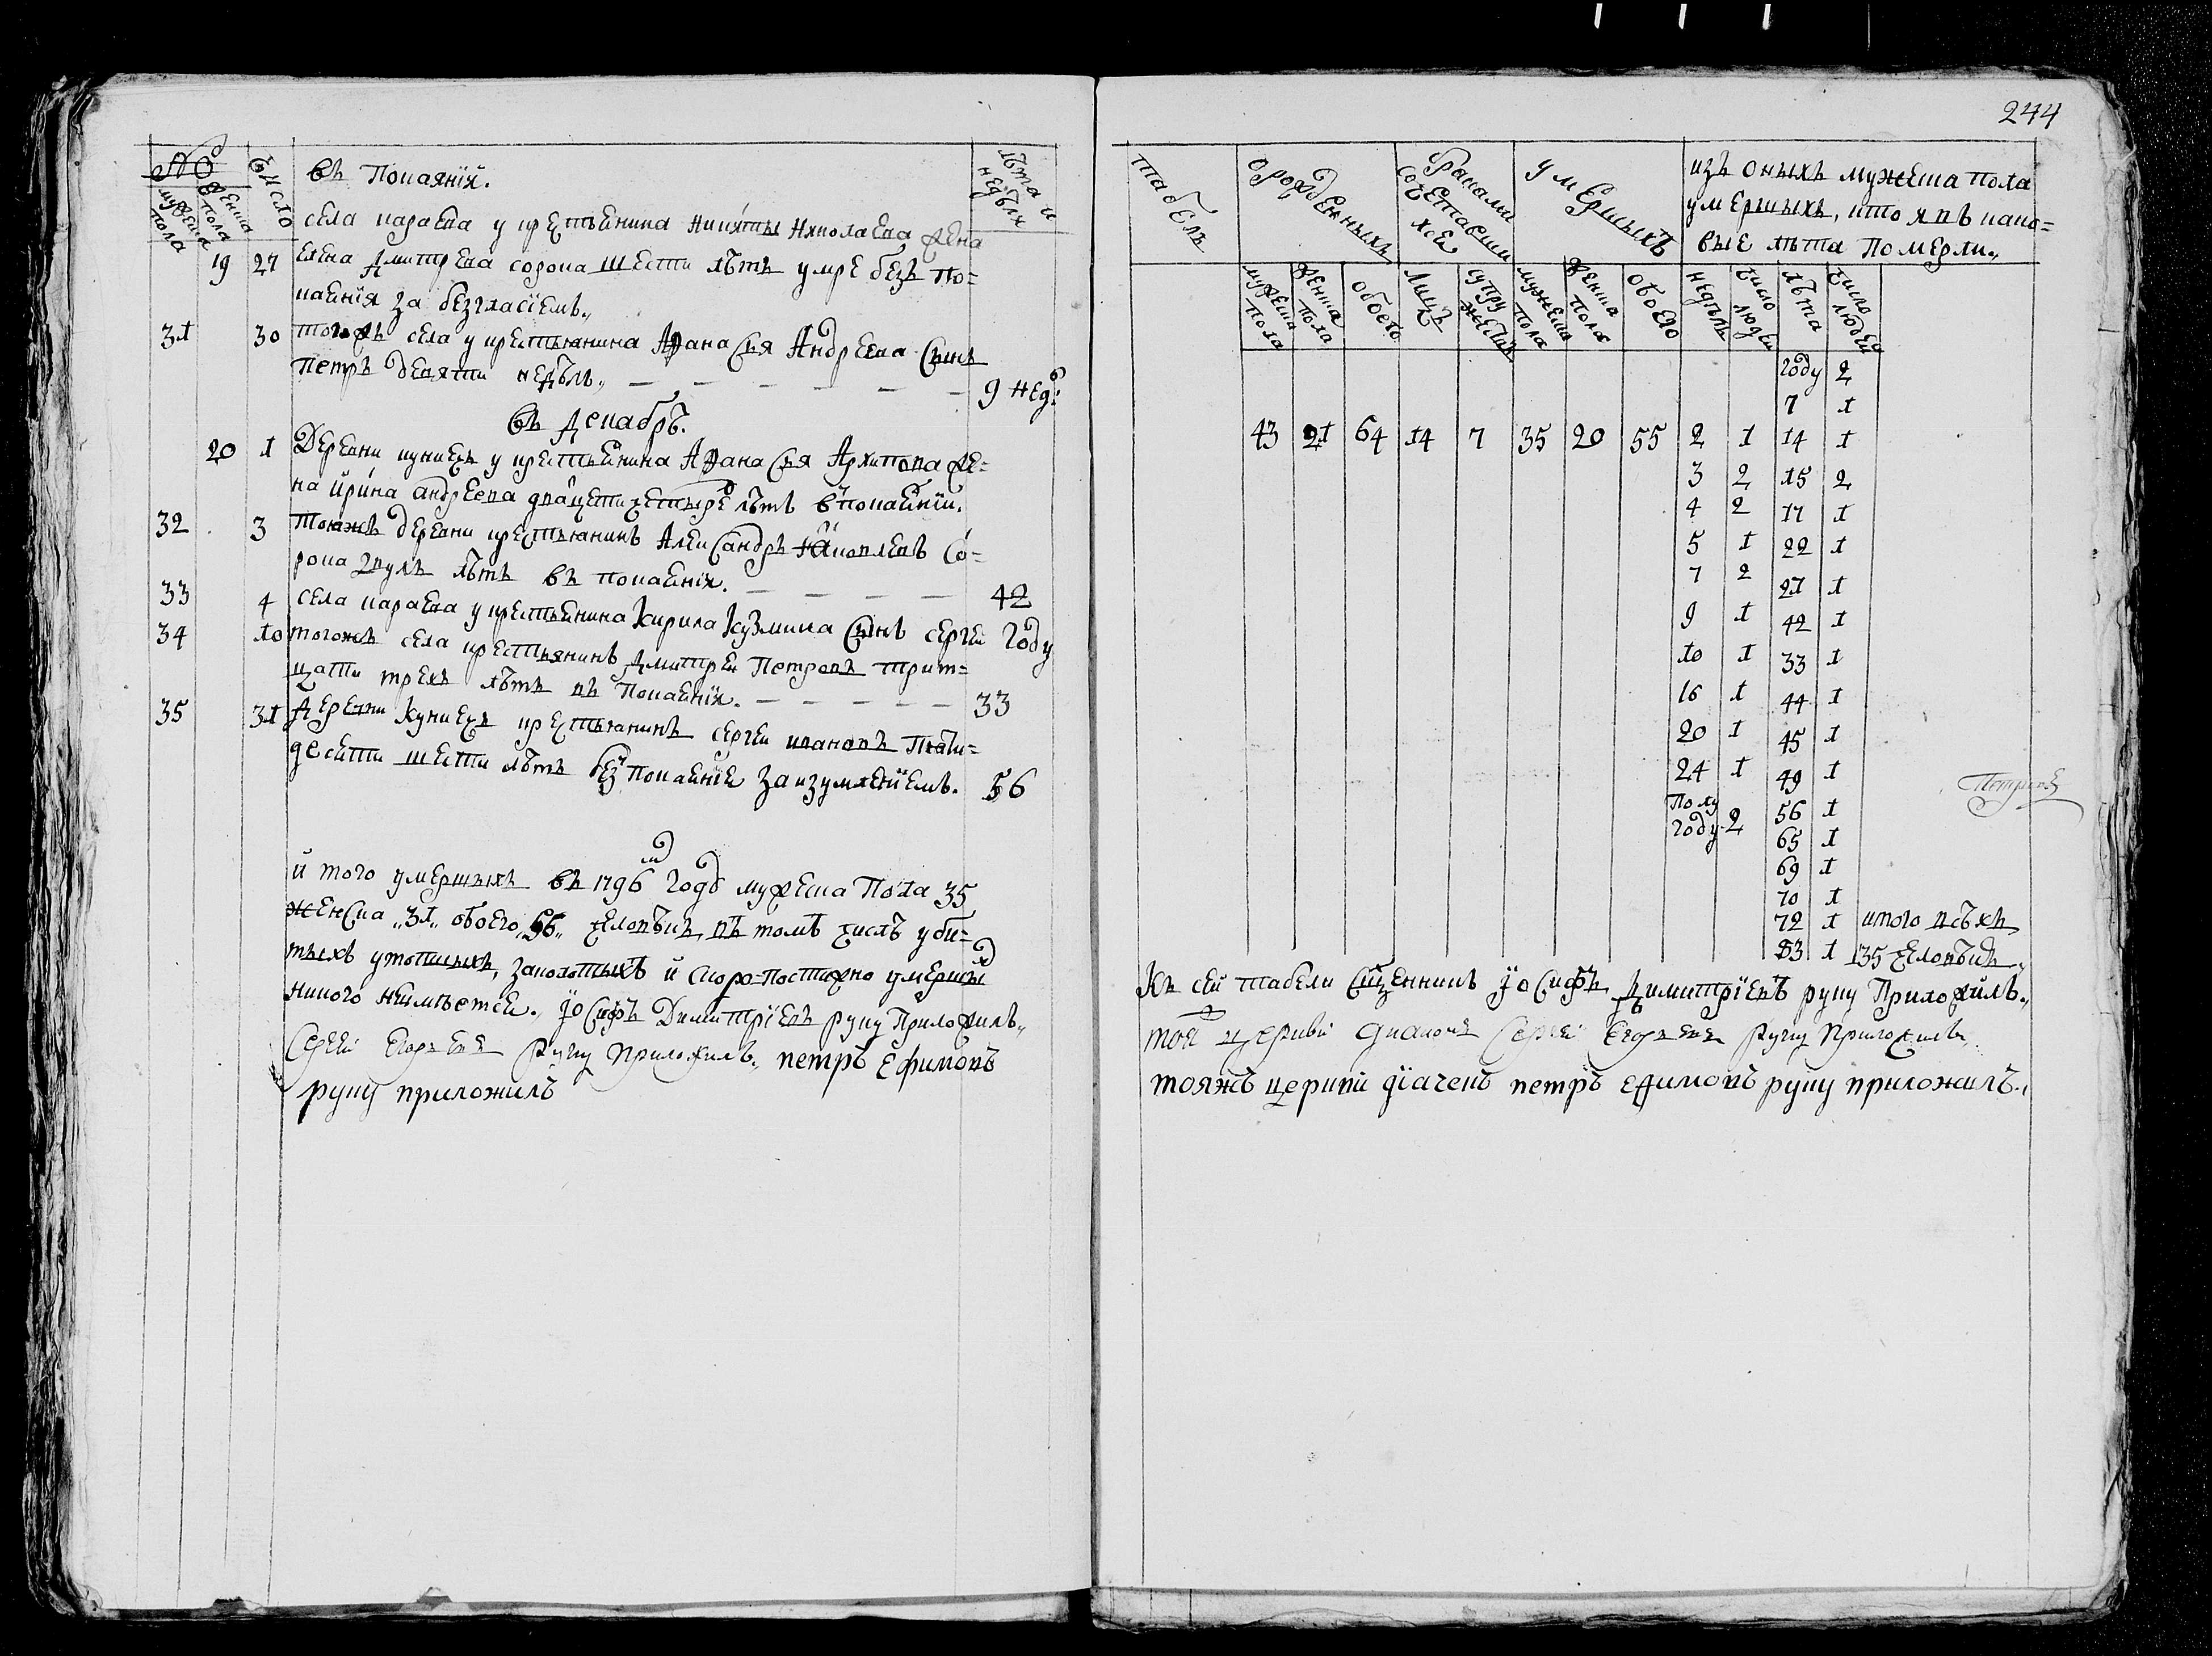 244
№
мужеска пола
женска пола
Число
лѣта и недѣли
въ Покаянїй.
села караева у крестьенина Никиты Николаева жена
19 27 Елена Дмитрева сорока шести лѣтъ умре безъ по=
каенїя за безгласїемъ.,
31 30 тогожъ села у крестьянина Афанасья Андреева Сынъ
петръ девяти недѣль., — — — — — — 9 нед:
въ декабрѣ.
20 1 Деревни куниехъ у крестьенина Афанасья Архипова же=
на йрина андреева двацети четыре лѣтъ в покаенїи.
32 3 тоижъ деревни крестьянинъ Алеѯандръ Яковлевъ со=
рока двухъ лѣтъ въ покаенїи. — — — — 42
33 4 села караева у крестьенина Кирила Кузмина Сынъ сергеи Году
34 10 тогожъ села крестьянинъ Дмитреи Петровъ трит=
цати трехъ лѣтъ въ Покаенїи. — — — — — 33
35 31 Деревни Куниехъ крестьянинъ сергеи ивановъ Пяти=
десети шести лѣтъ без покаенїе за изумленїемъ. 56
й того умершыхъ въ 1796 Годѣ мужеска Пола 35
женска „31„ обоего „66„ человѣкъ, въ томъ числѣ уби=
тыхъ утопшыхъ, и скоро-постижно умершы
никого неимѣетсе. Їосифъ Димитрїевъ руку Приложилъ.,
Сергеи Егоревъ Руку Приложилъ., петръ Ефимовъ
руку приложилъ
табель
о рожденныхъ
браками сочетавшихсе
умершыхъ
изъ оныхъ мужеска пола
умершыхъ, кто я въ како=
выe лѣта Померли.,
мужеска пола
женска пола
обоего
лицъ
супружествъ
мужеска пола
женска пола
обоего
недѣль
число людеи
лѣта
число людеи
Году 2
7 1
43 21 64 14 7 35 20 55 2 1 14 1
3 2 15 2
4 2 17 1
5 1 22 1
7 2 27 1
9 1 42 1
10 1 33 1
16 1 44 1
20 1 45 1
24 1 49 1
Полу году 2 56 1
65 1
69 1
70 1
72 1 итого всѣхъ
83 1 135 человѣкъ
Къ сеи табели Сщенникъ Їосифъ Димитрїевъ руку Приложилъ.,
тои церкви диаконъ Сергеи Егоревъ Руку Приложилъ,
тояжъ церкви дїаченъ петръ ефимовъ руку приложилъ.,